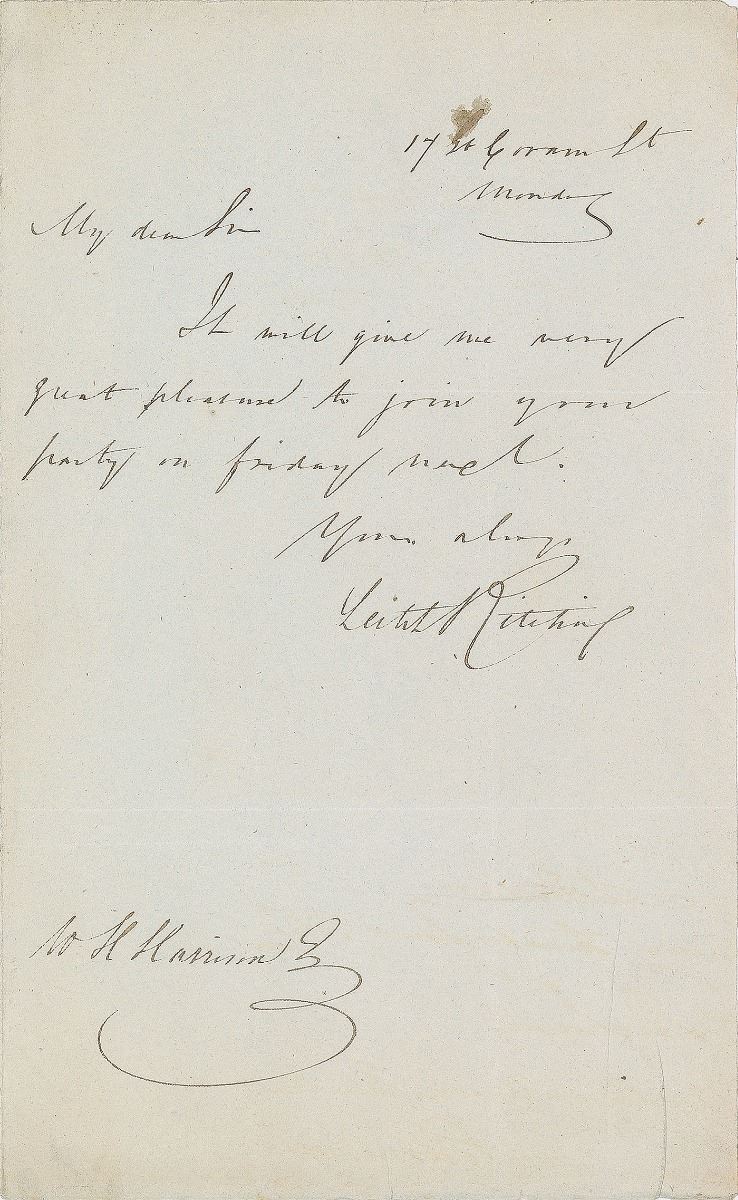 17 Gt Coram St
Monday
My dear Sir
It will give me very
great pleasure to join your
party on friday next.
Yours always
Leitch Ritchie
W H Harrison Esq